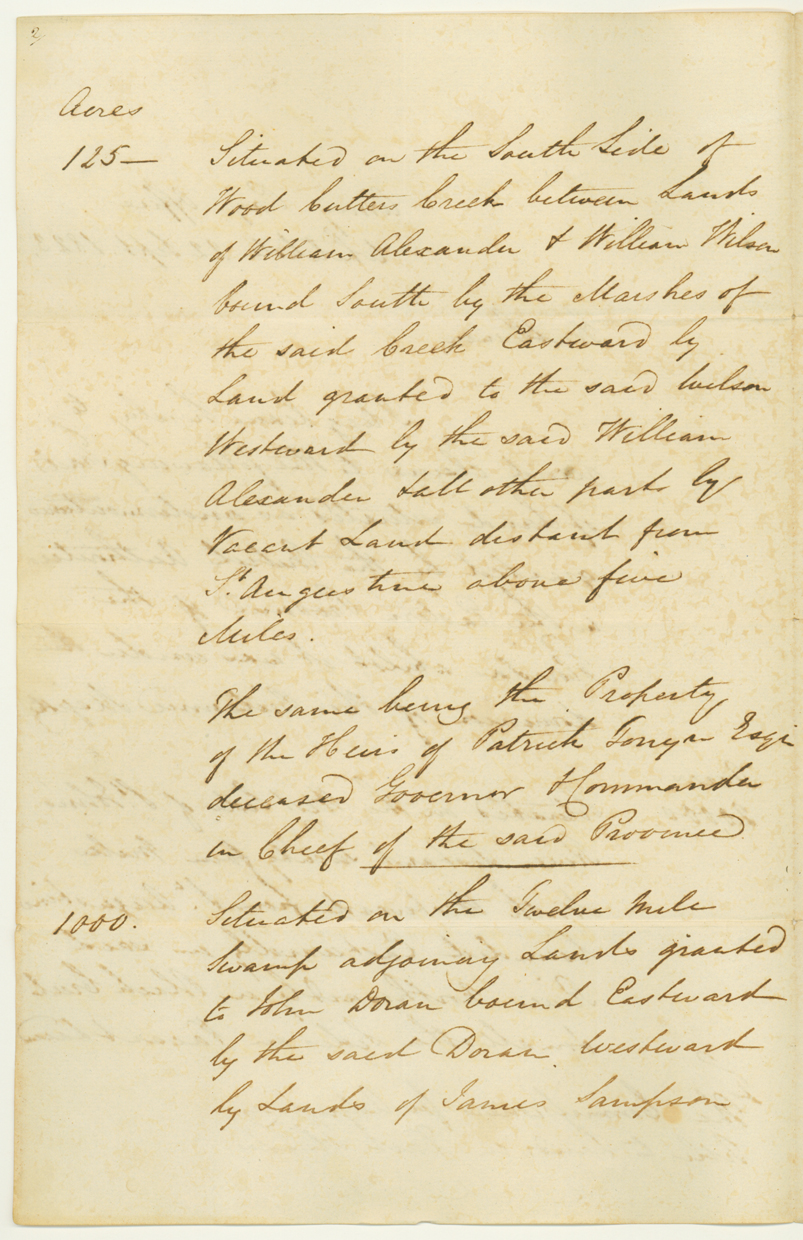 2/
Acres
125— Situated on the South Side of
Wood Cutters Creek between Lands
of William Alexander & William Wilson
bound South by the Marshes of
the said Creek Eastward by
Land granted to the said Wilson
Westward by the said William
Alexander & all other parts by
Vacant Land distant from
St. Augustine above five
Miles.
The same being the Property
of the Heirs of Patrick Tonyn Esqr
deceased Governor & Commander
in Cheef of the said Province
1000. Situated on the Twelve Mile
Swamp adjoining Lands granted
to John Doran bound Eastward
by the said Doran Westward
by Lands of James Sampson